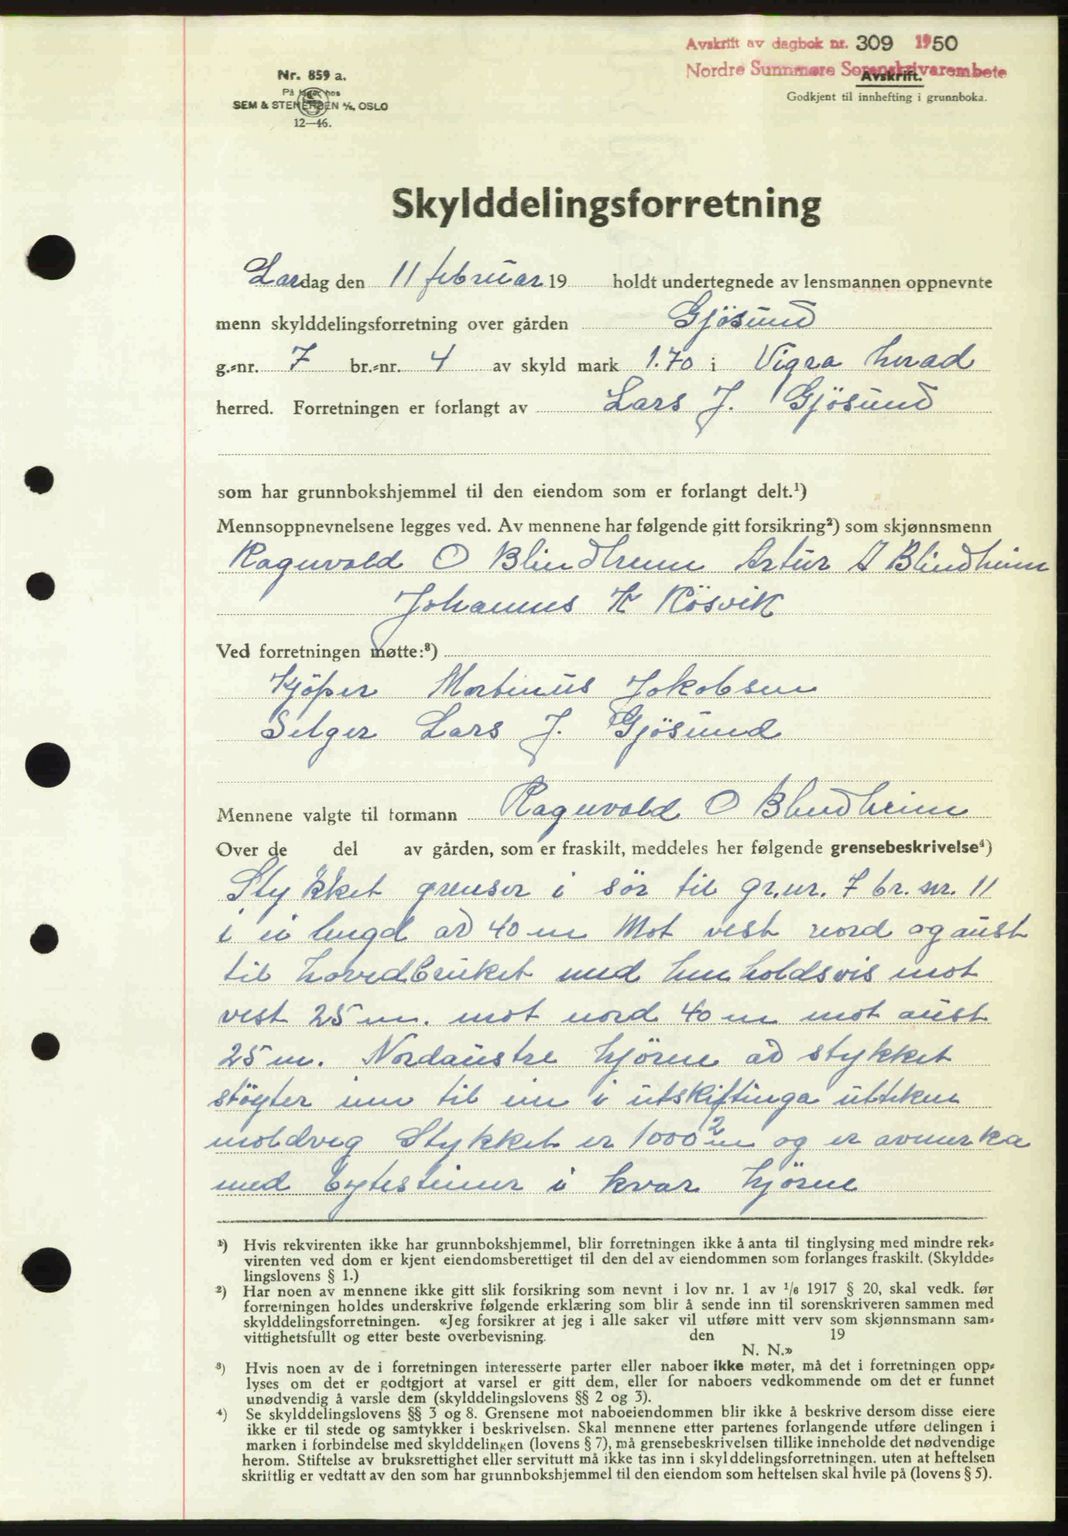 Avskrift av dagbok nr. 309 1950
Nordre Sunnmøre Sorenskrivarembete
Avskrift.
Godkjent til innhefting i grunnboka.
Nr. 859 a.
På lager hos
SEM & STENERSEN A/S, OSLO
12—46.
Skylddelingsforretning
Lørdag den 11 februar 19 holdt undertegnede av lensmannen oppnevnte
menn skylddelingsforretning over gården Gjösund
g.-nr. 7 br.-nr. 4 av skyld mark 1.70 i Vigra herad
herred. Forretningen er forlangt av Lars J. Gjösund
som har grunnbokshjemmel til den eiendom som er forlangt delt.¹)
Mennsoppnevnelsene legges ved. Av mennene har følgende gitt forsikring²) som skjønnsmenn
Ragnvald O Blindheim Artur J Blindheim
Johannes K Rösvik
Ved forretningen møtte:³)
Kjöper Martinus Jakobsen
Selger Lars J. Gjösund
Mennene valgte til formann Ragnvald O Blindheim
Over de del av gården, som er fraskilt, meddeles her følgende grensebeskrivelse⁴)
Stykket grenser i sör til gr.nr. 7 br. nr. 11
i ei lengd av 40 m Mot vest nord og aust
til hovedbruket med henholdsvis mot
vest 25 m. mot nord 40 m mot aust
25 m. Nordaustre hjörne av stykket
stöyter inn til ein i utskiftinga utteken
moldveg Stykket er 1000 m² og er avmerka
med bytesteiner i kvar hjörne
¹) Hvis rekvirenten ikke har grunnbokshjemmel, blir forretningen ikke å anta til tinglysing med mindre rek-
virenten ved dom er kjent eiendomsberettiget til den del av eiendommen som forlanges fraskilt. (Skyldde-
lingslovens § 1.)
²) Har noen av mennene ikke gitt slik forsikring som nevnt i lov nr. 1 av 1/6 1917 § 20, skal vedk. før
forretningen holdes underskrive følgende erklæring som blir å sende inn til sorenskriveren sammen med
skylddelingsforretningen. «Jeg forsikrer at jeg i alle saker vil utføre mitt verv som skjønnsmann sam-
vittighetsfullt og etter beste overbevisning. den 19
N. N.»
³) Hvis noen av de i forretningen interesserte parter eller naboer ikke møter, må det i forretningen opp-
lyses om det er godtgjort at varsel er gitt dem, eller for naboers vedkommende om det er funnet
unødvendig å varsle dem (skylddelingslovens §§ 2 og 3).
⁴) Se skylddelingslovens §§ 3 og 8. Grensene mot naboeiendommen blir ikke å beskrive dersom disse eiere
ikke er til stede og samtykker i beskrivelsen. Skal mennene etter partenes forlangende utføre delingen i
marken i forbindelse med skylddelingen (lovens § 7), må grensebeskrivelsen tillike inneholde det nødvendige
herom. Stiftelse av bruksrettighet eller servitutt må ikke tas inn i skylddelingsforretningen, uten at heftelsen
skriftlig er vedtatt av den som har grunnbokshjemmel til den eiendom som heftelsen skal hvile på (lovens § 5).